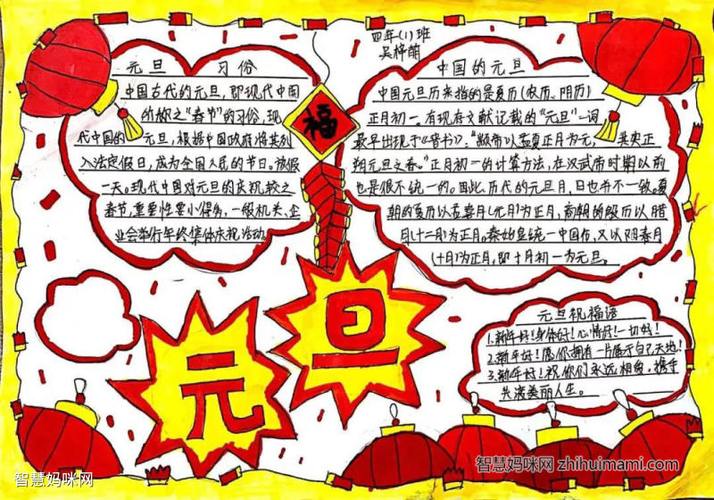 四年(1)班
吴梓萌
元旦 习俗
中国古代的元旦,即现代中国
所称之"春节"的习俗,现
代中国的元旦,根据中国政府将其列
入法定假日,成为全国人民的节日。放假
一天。现代中国对元旦的庆祝较之
春节,重要性要小得多,一般机关、企
业会举行年终集体庆祝活动
福
中国的元旦
中国元旦历来指的是夏历(农历、阴历)
正月初一,有现存文献记载的"元旦"一词
最早出现于《晋书》:"颛帝以孟夏正月为元,其实正
朔元旦之春。"正月初一的计算方法,在汉武帝时期以前
也是很不统一的。因此,历代的元旦月、日也并不一致。夏
朝的夏历以孟喜月(元月)为正月,商朝的殷历以腊
月(十二月)为正月。秦始皇统一中国后,又以阴春月
(十月)为正月,即十月初一为元旦。
元旦
元旦祝福语
1.新年好!身体好!心情好!一切好!
2.新年好!愿你拥有一片属于自己天地!
3.新年好!祝你们永远相会,携手
共演美丽人生。
智慧妈咪网
智慧妈咪网 zhihuimami.com